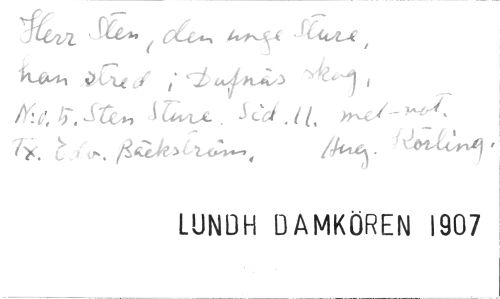 Herr Sten, den unge Sture,
han stred i Dufnäs skog,
N:o. 5. Sten Sture. Sid. 11. mel-not.
Tx. Edv. Bäckström. Aug. Körling.
LUNDH DAMKÖREN 1907